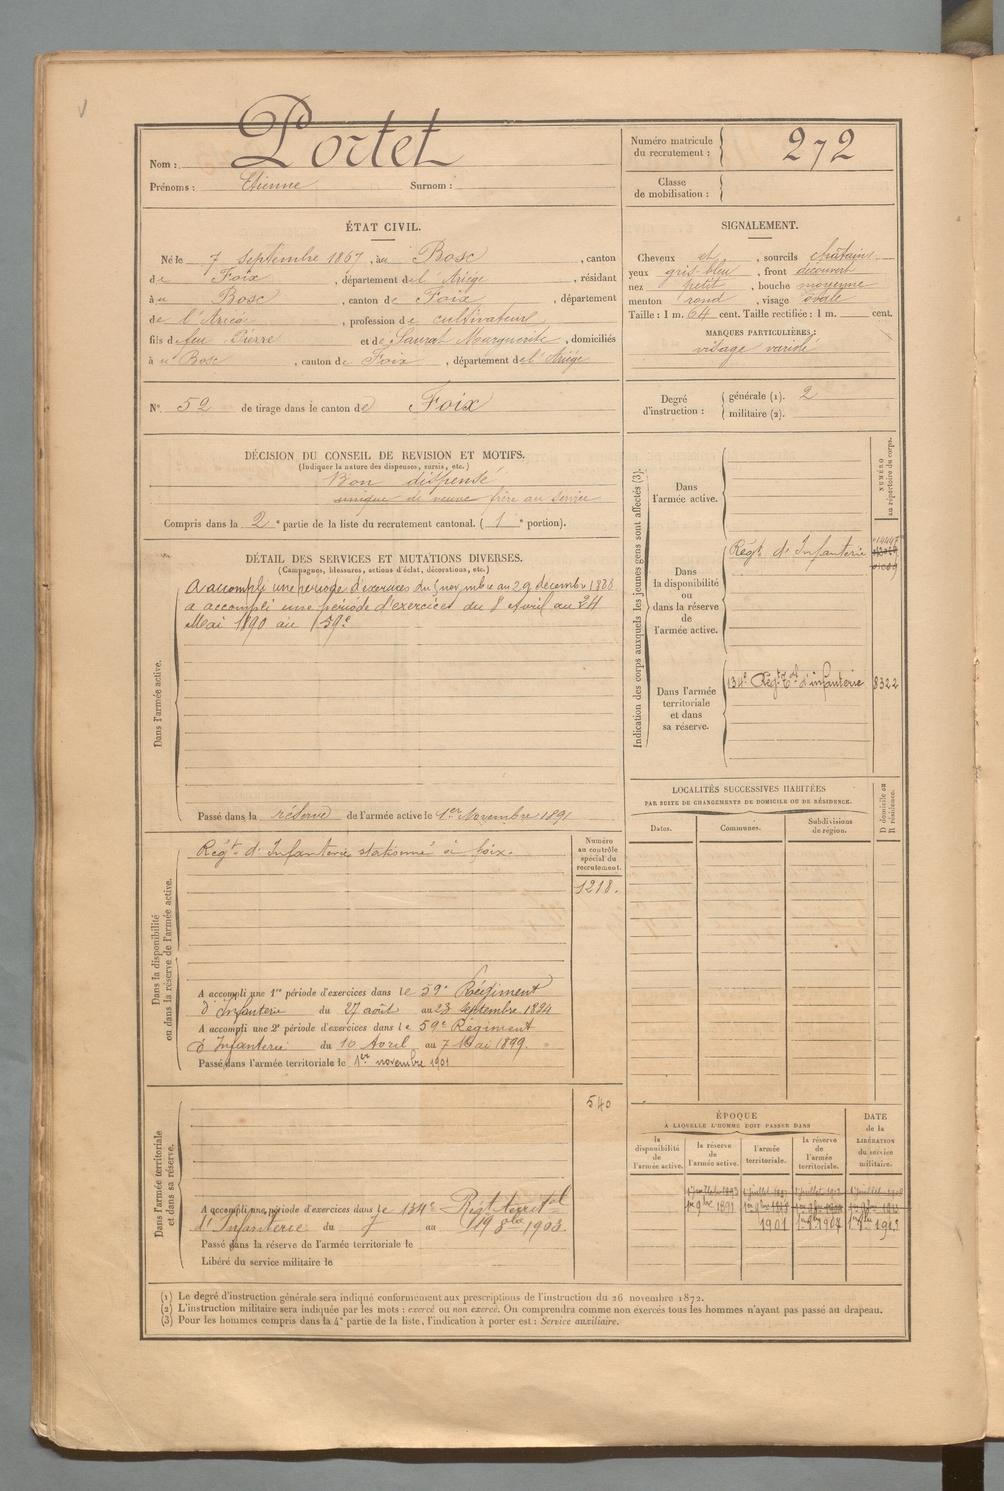 Nom : Portet
Prénoms : Etienne Surnom :
Numéro matricule du recrutement : 272
Classe de mobilisation :
ÉTAT CIVIL.
Né le 7 septembre 1867, à u Bosc, canton
de Foix, département de l'Ariége, résidant
à u Bosc, canton de Foix, département
de l'Ariég, profession de cultivateur
fils de feu Pierre et de Saurat Marguerite, domiciliés
à u Bosc, canton de Foix, département de l'Ariége
N° 52 de tirage dans le canton de Foix
SIGNALEMENT.
Cheveux et, sourcils châtains
yeux gris bleu, front découvert
nez petit, bouche moyenne
menton rond, visage ovale
Taille : 1 m. 64 cent. Taille rectifiée : 1 m. cent.
MARQUES PARTICULIÈRES :
visage variolé
Degré d'instruction :
générale (1). 2
militaire (2).
DÉCISION DU CONSEIL DE REVISION ET MOTIFS.
(Indiquer la nature des dispenses, sursis, etc.)
Bon dispensé
unique de veuve frère au service
Compris dans la 2e partie de la liste du recrutement cantonal. (1e portion).
DÉTAIL DES SERVICES ET MUTATIONS DIVERSES.
(Campagnes, blessures, actions d'éclat, décorations, etc.)
Dans l'armée active.
A accompli une période d'exercices du 5 novembre au 29 decembre 1888
a accompli une période d'exercices du 8 Avril au 24
Mai 1890 au 59e
Passé dans la réserve de l'armée active le 1er Novembre 1891
Indication des corps auxquels les jeunes gens sont affectés (3).
NUMÉRO au répertoire du corps.
Dans l'armée active.
Dans la disponibilité ou dans la réserve de l'armée active.
Régt d'Infanterie
Dans l'armée territoriale et dans sa réserve.
134e Régt Tal d'infanterie 8322
LOCALITÉS SUCCESSIVES HABITÉES
PAR SUITE DE CHANGEMENTS DE DOMICILE OU DE RÉSIDENCE.
Dates. Communes. Subdivisions de région. D domicile ou R résidence.
Dans la disponibilité ou dans la réserve de l'armée active.
Régt d'Infanterie stationné à foix.
Numéro au contrôle spécial du recrutement.
1218.
A accompli une 1re période d'exercices dans le 59e Régiment
d'Infanterie du 27 août au 23 septembre 1894
A accompli une 2e période d'exercices dans le 59e Régiment
d'Infanterie du 10 Avril au 7 Mai 1899.
Passé dans l'armée territoriale le 1er novembre 1901
Dans l'armée territoriale et dans sa réserve.
540
A accompli une période d'exercices dans le 134e Régt territal
d'Infanterie du 7 au 19 8bre 1903.
Passé dans la réserve de l'armée territoriale le
Libéré du service militaire le
ÉPOQUE
A LAQUELLE L'HOMME DOIT PASSER DANS
la disponibilité de l'armée active.
la réserve de l'armée active.
l'armée territoriale.
la réserve de l'armée territoriale.
DATE de la LIBÉRATION du service militaire.
1er 9bre 1891
1901 1er 9bre 1907 1er 9bre 1913
(1) Le degré d'instruction générale sera indiqué conformément aux prescriptions de l'instruction du 26 novembre 1872.
(2) L'instruction militaire sera indiquée par les mots : exercé ou non exercé. On comprendra comme non exercés tous les hommes n'ayant pas passé au drapeau.
(3) Pour les hommes compris dans la 4e partie de la liste, l'indication à porter est : Service auxiliaire.